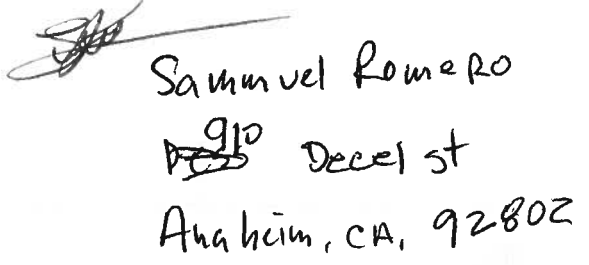 Sammuel Romero
910 Decel st
Anaheim, CA, 92802